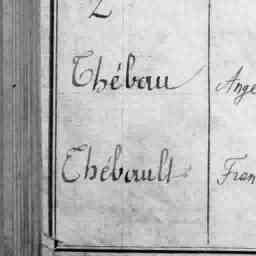 Thébau Ange
Thébault Fran